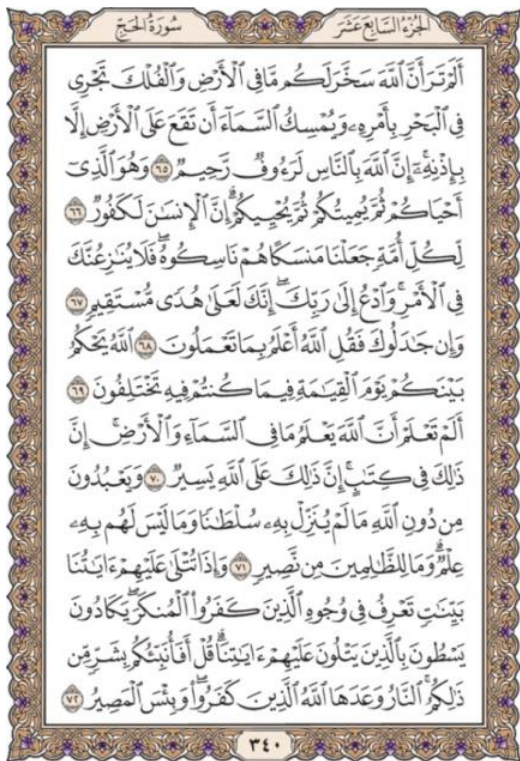 الجزء السابع عشر
سورة الحج
أَلَمْ تَرَ أَنَّ ٱللَّهَ سَخَّرَ لَكُم مَّا فِى ٱلْأَرْضِ وَٱلْفُلْكَ تَجْرِى
فِى ٱلْبَحْرِ بِأَمْرِهِۦ وَيُمْسِكُ ٱلسَّمَآءَ أَن تَقَعَ عَلَى ٱلْأَرْضِ إِلَّا
بِإِذْنِهِۦٓ ۗ إِنَّ ٱللَّهَ بِٱلنَّاسِ لَرَءُوفٌ رَّحِيمٌ ٦٥ وَهُوَ ٱلَّذِىٓ
أَحْيَاكُمْ ثُمَّ يُمِيتُكُمْ ثُمَّ يُحْيِيكُمْ ۗ إِنَّ ٱلْإِنسَـٰنَ لَكَفُورٌ ٦٦
لِّكُلِّ أُمَّةٍ جَعَلْنَا مَنسَكًا هُمْ نَاسِكُوهُ ۖ فَلَا يُنَـٰزِعُنَّكَ
فِى ٱلْأَمْرِ ۚ وَٱدْعُ إِلَىٰ رَبِّكَ ۖ إِنَّكَ لَعَلَىٰ هُدًى مُّسْتَقِيمٍ ٦٧
وَإِن جَـٰدَلُوكَ فَقُلِ ٱللَّهُ أَعْلَمُ بِمَا تَعْمَلُونَ ٦٨ ٱللَّهُ يَحْكُمُ
بَيْنَكُمْ يَوْمَ ٱلْقِيَـٰمَةِ فِيمَا كُنتُمْ فِيهِ تَخْتَلِفُونَ ٦٩
أَلَمْ تَعْلَمْ أَنَّ ٱللَّهَ يَعْلَمُ مَا فِى ٱلسَّمَآءِ وَٱلْأَرْضِ ۗ إِنَّ
ذَٰلِكَ فِى كِتَـٰبٍ ۚ إِنَّ ذَٰلِكَ عَلَى ٱللَّهِ يَسِيرٌ ٧٠ وَيَعْبُدُونَ
مِن دُونِ ٱللَّهِ مَا لَمْ يُنَزِّلْ بِهِۦ سُلْطَـٰنًا وَمَا لَيْسَ لَهُم بِهِۦ
عِلْمٌ ۗ وَمَا لِلظَّـٰلِمِينَ مِن نَّصِيرٍ ٧١ وَإِذَا تُتْلَىٰ عَلَيْهِمْ ءَايَـٰتُنَا
بَيِّنَـٰتٍ تَعْرِفُ فِى وُجُوهِ ٱلَّذِينَ كَفَرُوا۟ ٱلْمُنكَرَ ۖ يَكَادُونَ
يَسْطُونَ بِٱلَّذِينَ يَتْلُونَ عَلَيْهِمْ ءَايَـٰتِنَا ۗ قُلْ أَفَأُنَبِّئُكُم بِشَرٍّ مِّن
ذَٰلِكُمُ ۗ ٱلنَّارُ وَعَدَهَا ٱللَّهُ ٱلَّذِينَ كَفَرُوا۟ ۖ وَبِئْسَ ٱلْمَصِيرُ ٧٢
٣٤٠